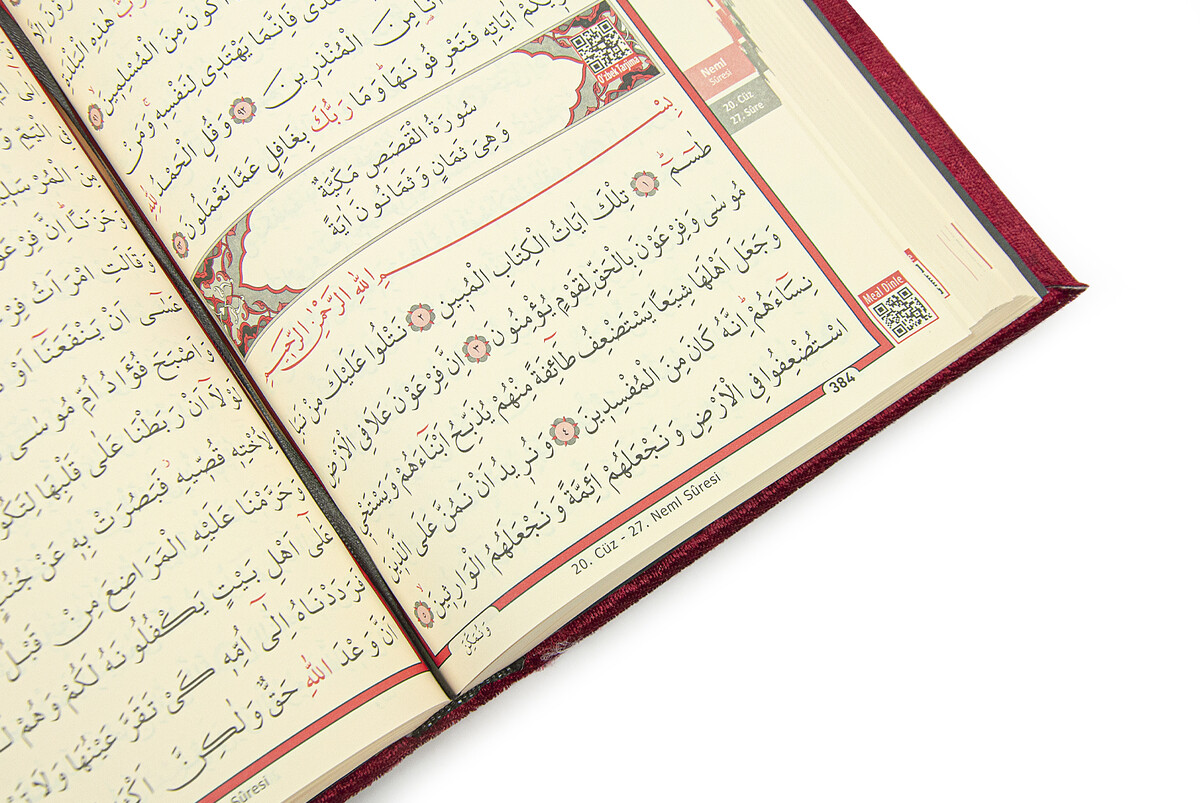 رَبَّ هٰذِهِ
اَكُونَ مِنَ الْمُسْلِمِينَ ﴿٩١﴾
فَاِنَّمَا يَهْتَدِى لِنَفْسِهِ وَمَنْ
اَنَا مِنَ الْمُنْذِرِينَ ﴿٩٢﴾ وَقُلِ الْحَمْدُ لِلّٰهِ
اٰيَاتِهِ فَتَعْرِفُونَهَا وَمَا رَبُّكَ بِغَافِلٍ عَمَّا تَعْمَلُونَ ﴿٩٣﴾
O'zbek Tarjima
سُورَةُ الْقَصَصِ مَكِّيَّةٌ
وَهِىَ ثَمَانٍ وَثَمَانُونَ اٰيَةً
بِسْمِ اللّٰهِ الرَّحْمٰنِ الرَّحِيمِ
طٰسٓمٓ ﴿١﴾ تِلْكَ اٰيَاتُ الْكِتَابِ الْمُبِينِ ﴿٢﴾ نَتْلُوا عَلَيْكَ مِنْ نَبَاِ
مُوسٰى وَفِرْعَوْنَ بِالْحَقِّ لِقَوْمٍ يُؤْمِنُونَ ﴿٣﴾ اِنَّ فِرْعَوْنَ عَلَا فِى الْاَرْضِ
وَجَعَلَ اَهْلَهَا شِيَعًا يَسْتَضْعِفُ طَٓائِفَةً مِنْهُمْ يُذَبِّحُ اَبْنَٓاءَهُمْ وَيَسْتَحْيٖ
نِسَٓاءَهُمْ اِنَّهُ كَانَ مِنَ الْمُفْسِدِينَ ﴿٤﴾ وَنُرِيدُ اَنْ نَمُنَّ عَلَى الَّذِينَ
اسْتُضْعِفُوا فِى الْاَرْضِ وَنَجْعَلَهُمْ اَئِمَّةً وَنَجْعَلَهُمُ الْوَارِثِينَ ﴿٥﴾
وَنُمَكِّنَ
384
20. Cüz - 27. Neml Sûresi
Neml
Sûresi
20. Cüz
27. Sûre
Meal Dinle
مِنَ الْمُرْسَلِ
وَحَزَنًا اِنَّ فِرْعَوْ
وَقَالَتِ امْرَاَتُ فِرْ
عَسٰٓى اَنْ يَنْفَعَنَٓا اَوْ
وَاَصْبَحَ فُؤَادُ اُمِّ مُوسٰى
لَوْلَٓا اَنْ رَبَطْنَا عَلٰى قَلْبِهَا لِتَكُو
لِاُخْتِهِ قُصِّيهِ فَبَصُرَتْ بِهِ عَنْ جُنُبٍ
وَحَرَّمْنَا عَلَيْهِ الْمَرَاضِعَ مِنْ قَبْلُ
عَلٰٓى اَهْلِ بَيْتٍ يَكْفُلُونَهُ لَكُمْ وَهُمْ لَ
فَرَدَدْنَاهُ اِلٰٓى اُمِّهِ كَىْ تَقَرَّ عَيْنُهَا وَلَا تَ
اَنَّ وَعْدَ اللّٰهِ حَقٌّ وَلٰكِنَّ اَكْثَ
Sûresi